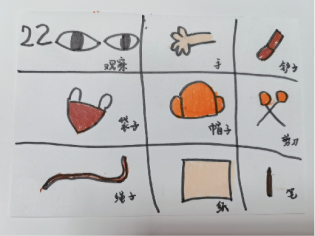 22
观察
手
铲子
袋子
帽子
剪刀
绳子
纸
笔